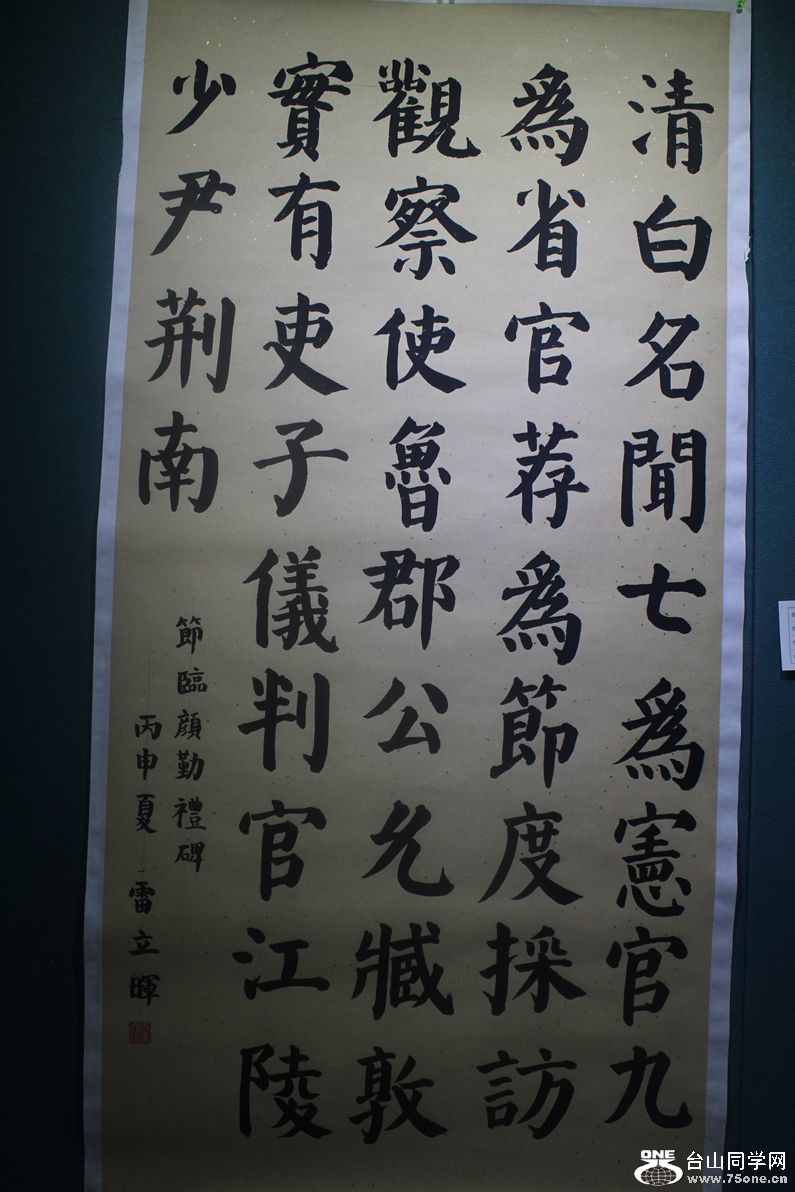 清白名聞七為憲官九
為省官荐為節度採訪
觀察使魯郡公允臧敦
實有吏子儀判官江陵
少尹荆南
節臨顔勤禮碑
丙申夏 雷立暉
ONE
台山同学网
www.75one.cn